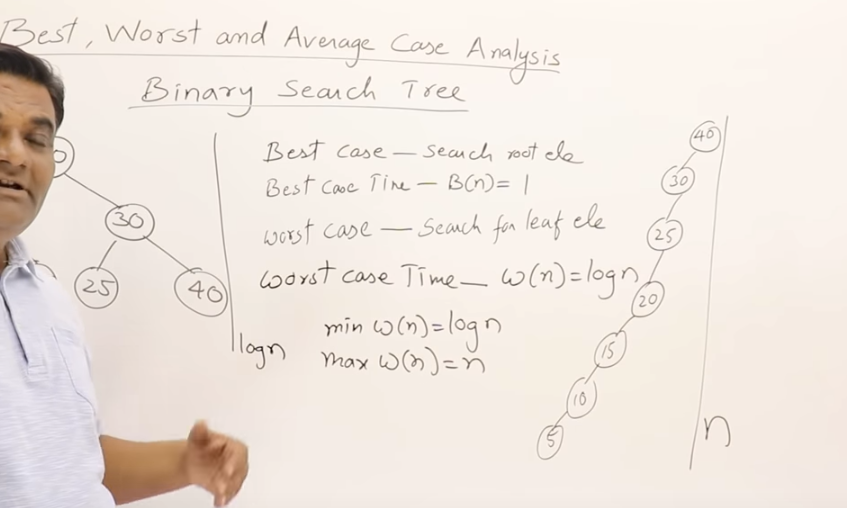 Best, Worst and Average Case Analysis
Binary Search Tree
Best case — Search root ele
Best Case Time — B(n) = 1
worst case — Search for leaf ele
worst case Time — w(n) = logn
min w(n) = logn
max w(n) = n
30
25
40
logn
40
30
25
20
15
10
5
n